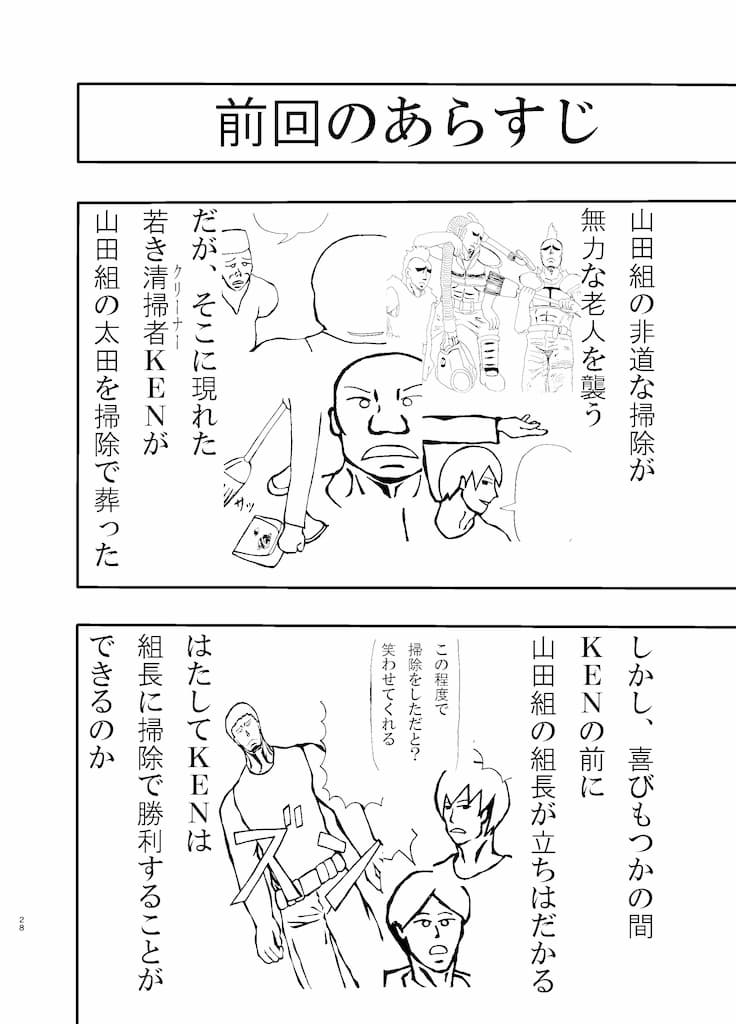 前回のあらすじ
山田組の非道な掃除が
無力な老人を襲う
だが、そこに現れた
若き清掃者KENが
クリーナー
山田組の太田を掃除で葬った
サッ
しかし、喜びもつかの間
KENの前に
山田組の組長が立ちはだかる
この程度で
掃除をしただと?
笑わせてくれる
はたしてKENは
組長に掃除で勝利することが
できるのか
28